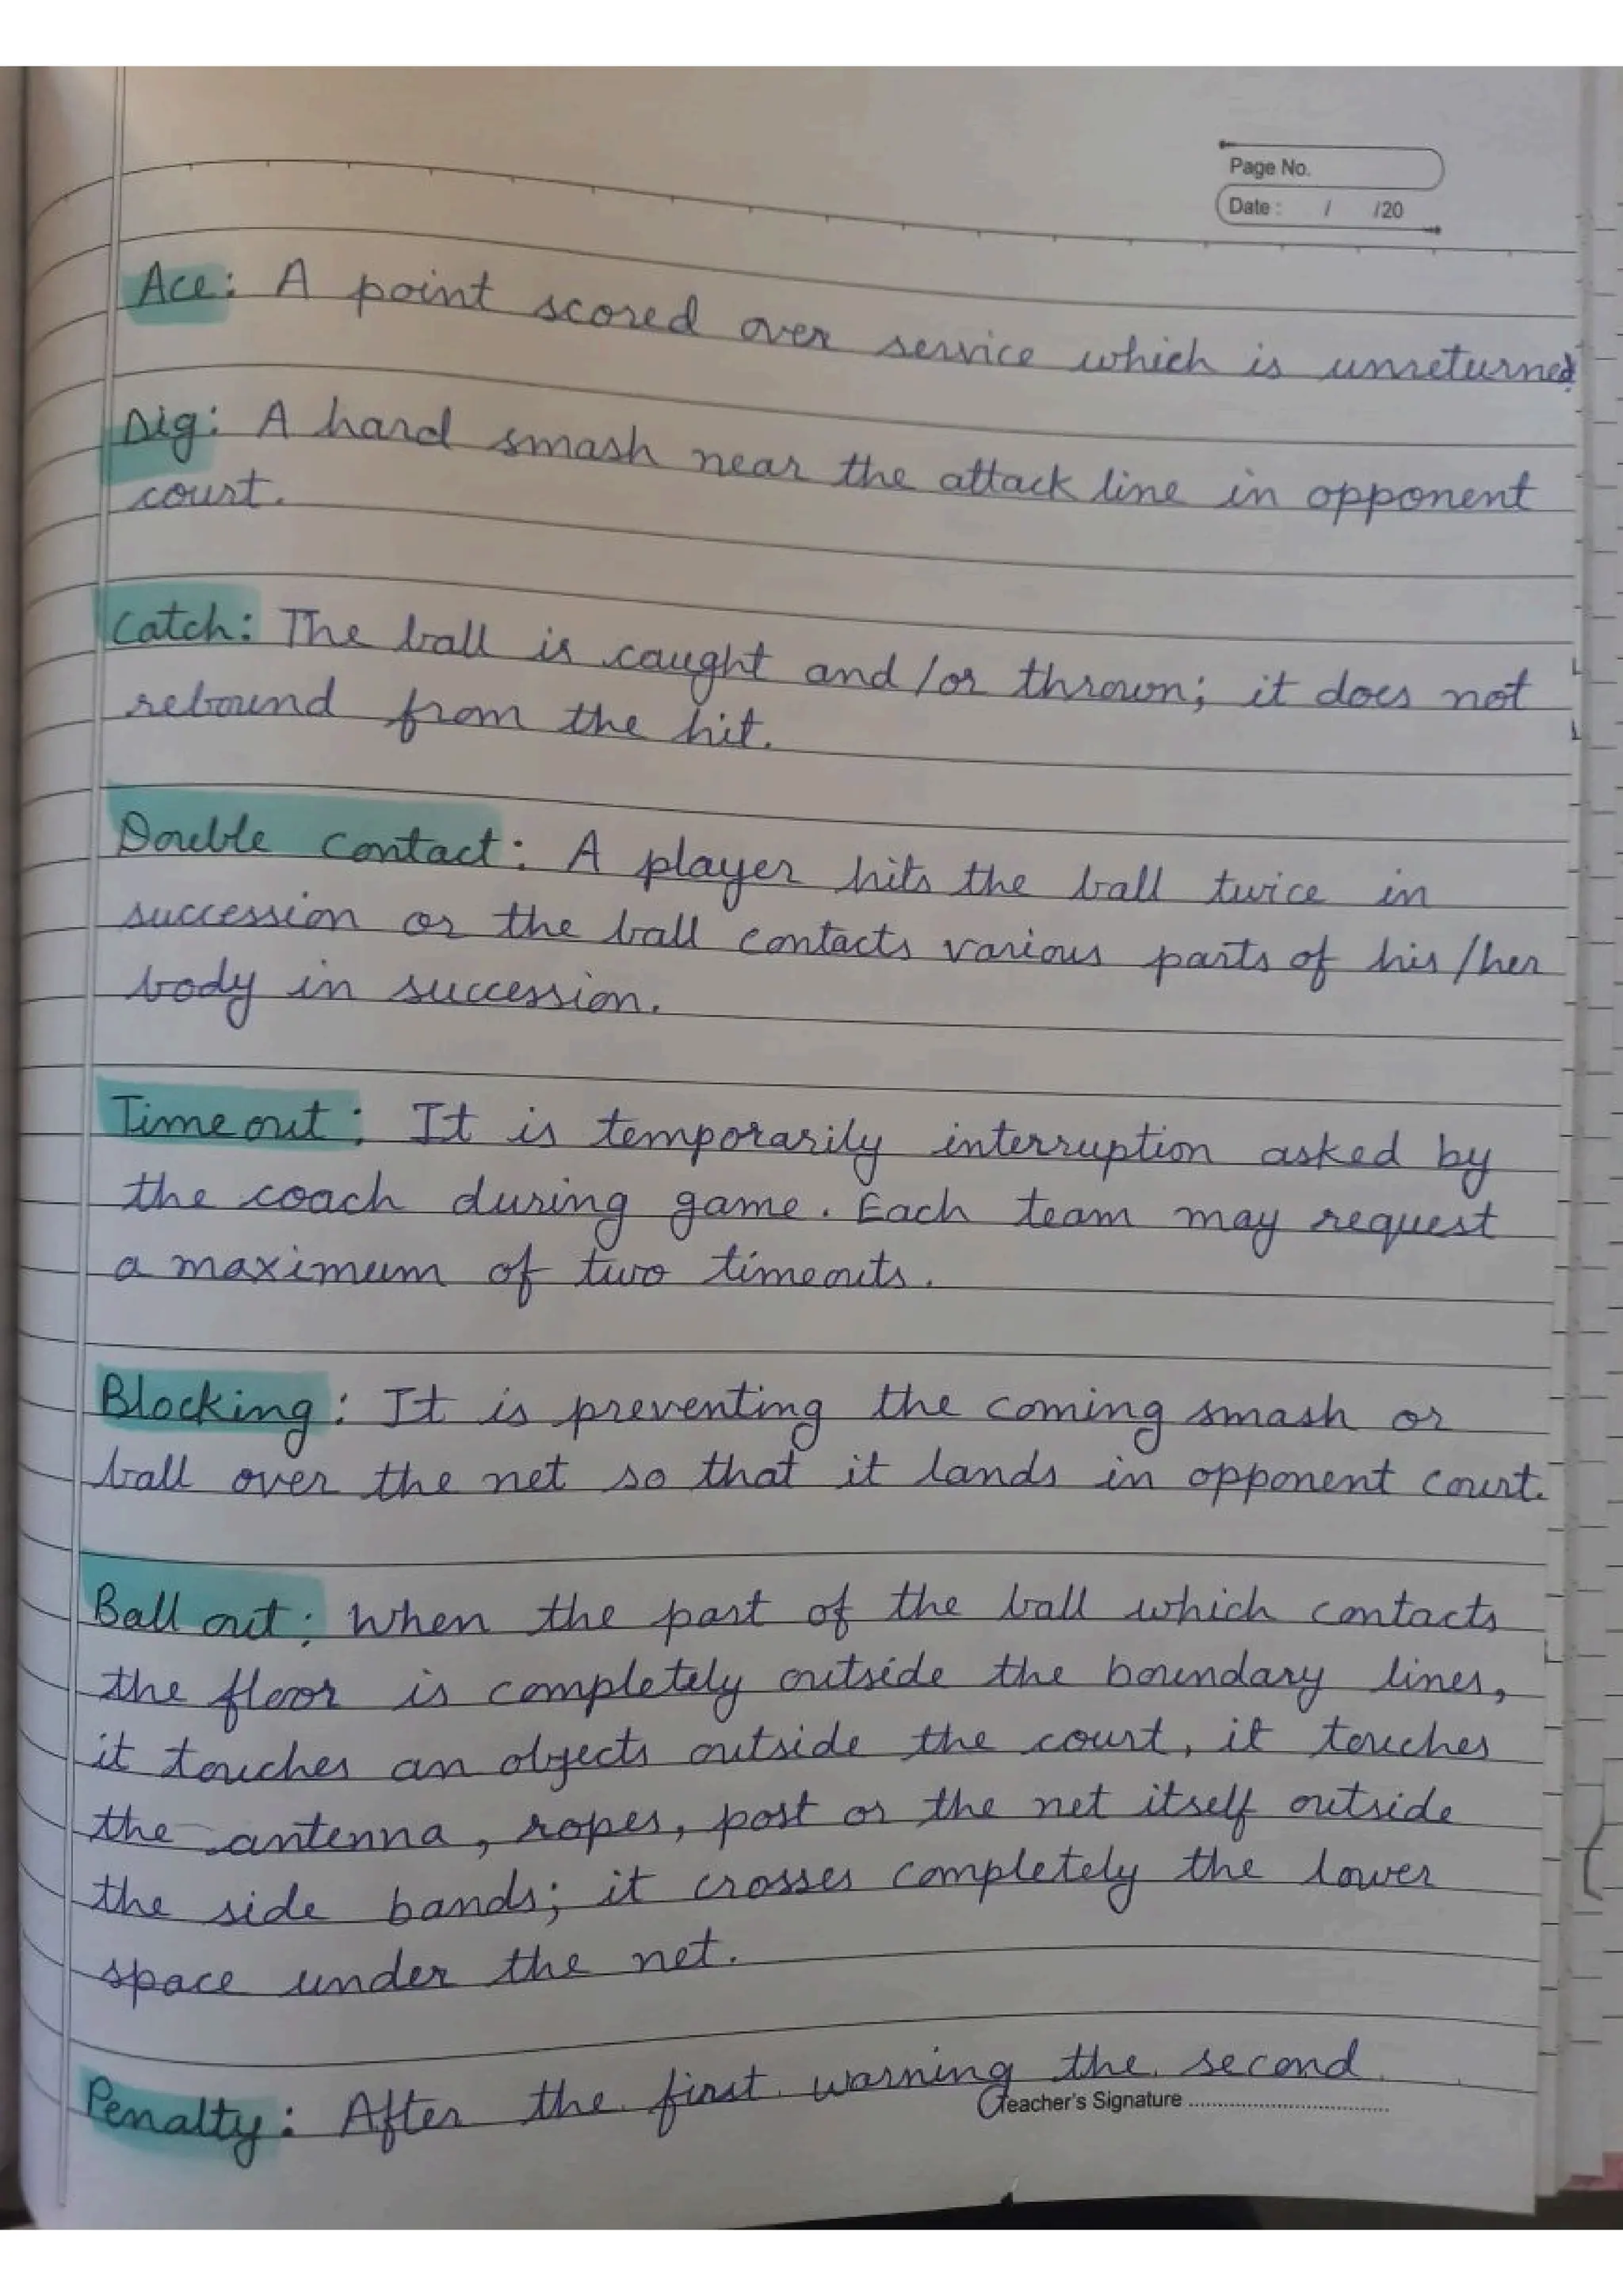 Page No.
Date : / /20
Ace: A point scored over service which is unreturned.
Dig: A hard smash near the attack line in opponent
court.
Catch: The ball is caught and/or thrown; it does not
rebound from the hit.
Double contact: A player hits the ball twice in
succession or the ball contacts various parts of his/her
body in succession.
Timeout: It is temporarily interruption asked by
the coach during game. Each team may request
a maximum of two timeouts.
Blocking: It is preventing the coming smash or
ball over the net so that it lands in opponent court.
Ball out: When the part of the ball which contacts
the floor is completely outside the boundary lines,
it touches an objects outside the court, it touches
the antenna, ropes, post or the net itself outside
the side bands; it crosses completely the lower
space under the net.
Penalty: After the first warning the second
Teacher's Signature ..................................